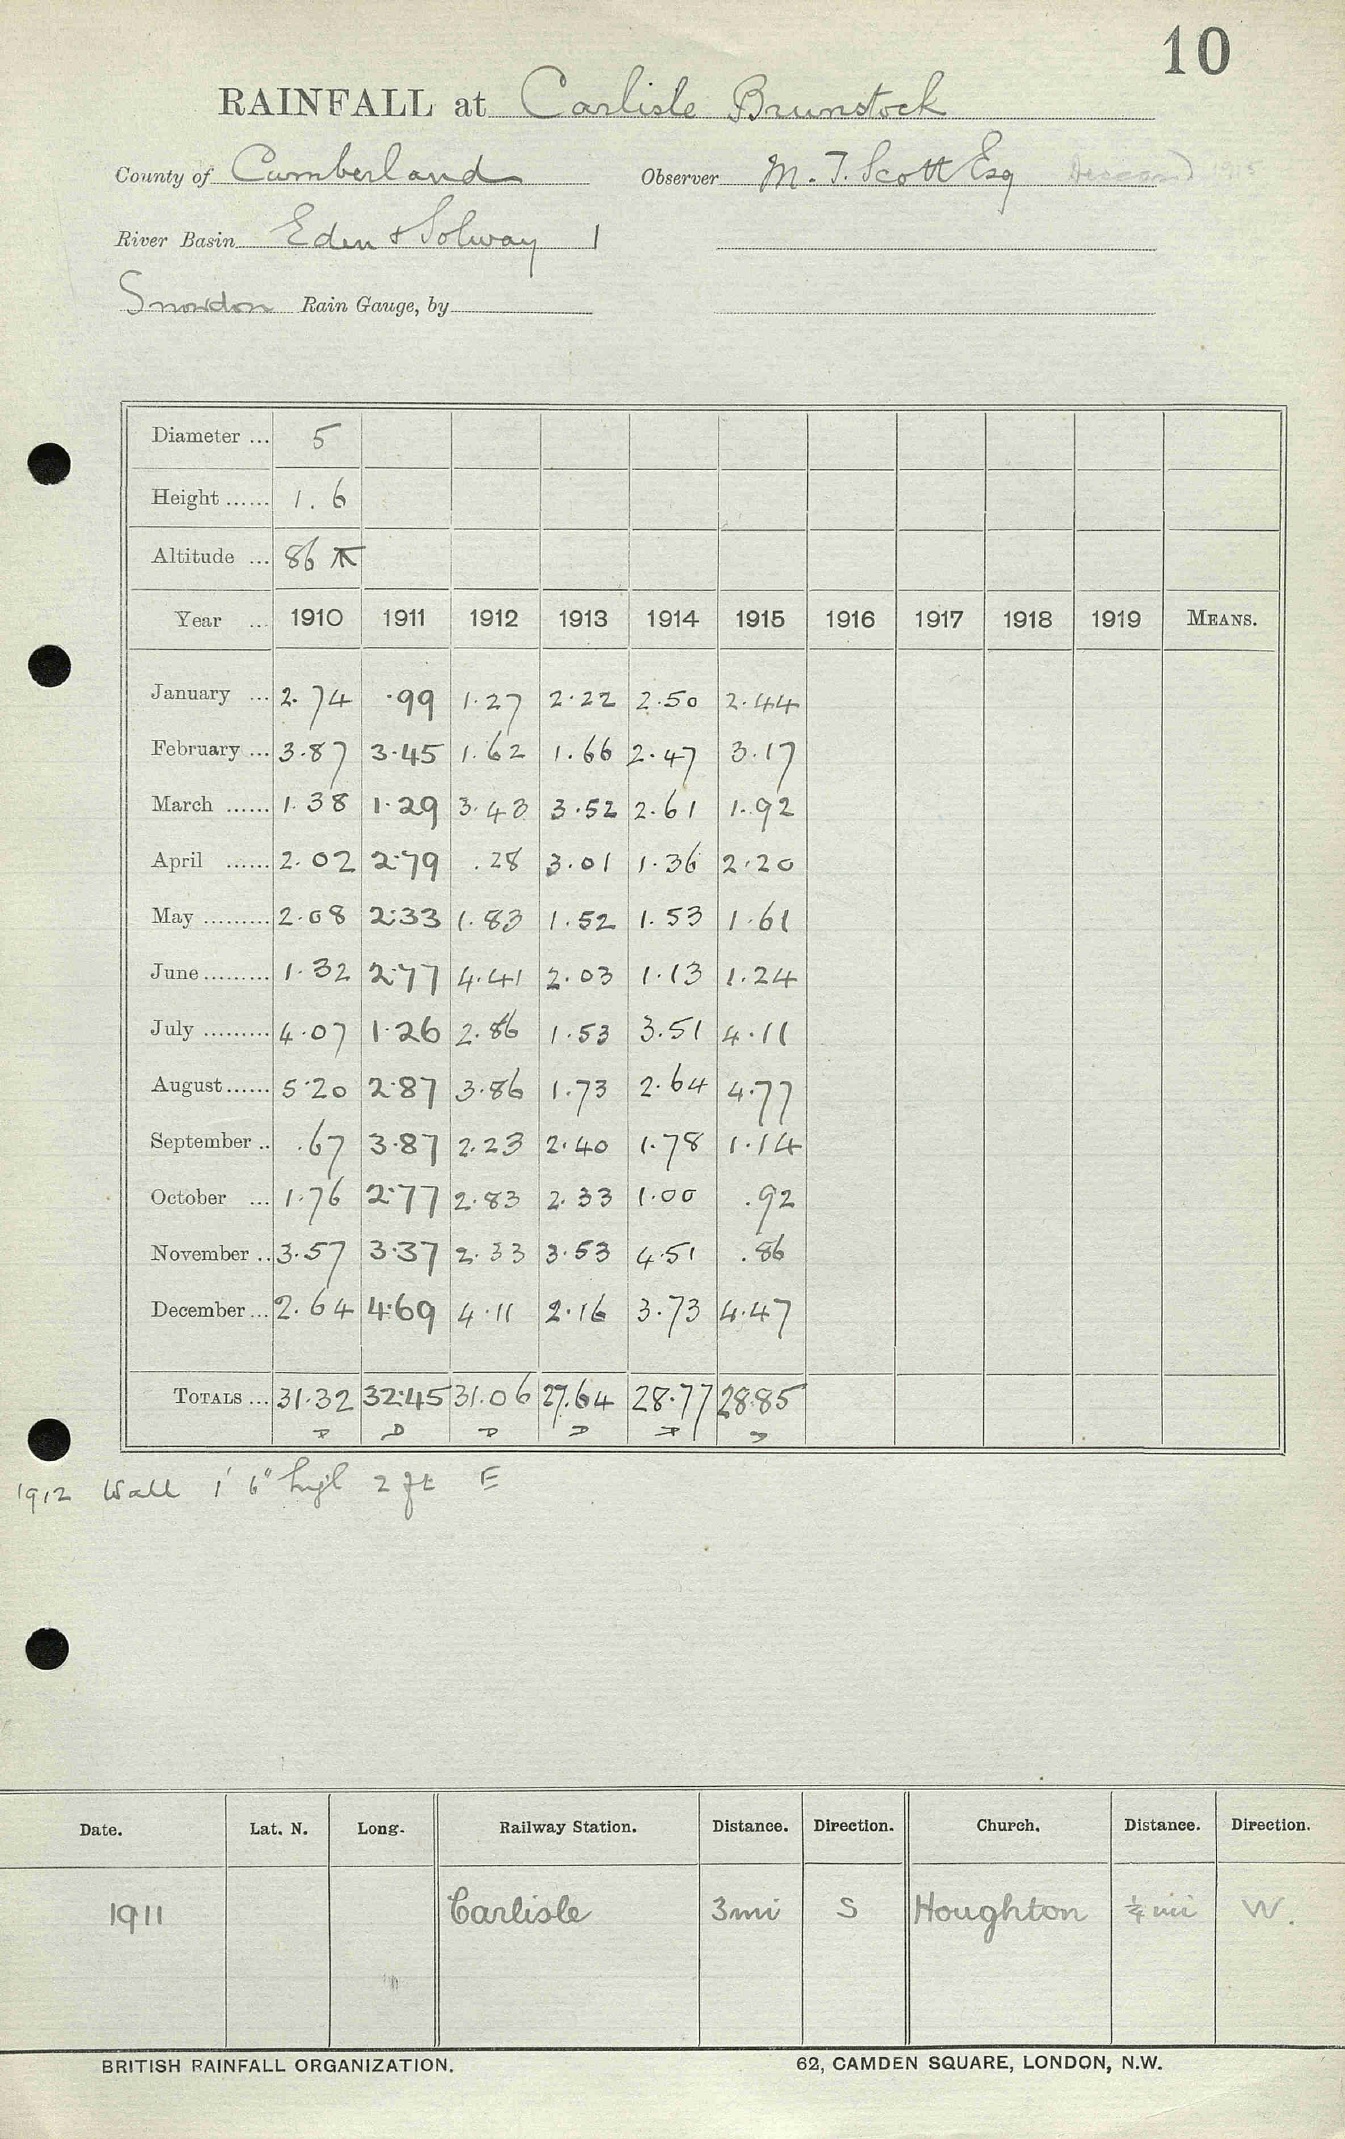 10
RAINFALL at Carlisle Brunstock
County of Cumberland Observer M. T. Scott Esq 1915
River Basin Eden & Solway 1
Snowdon Rain Gauge, by
Diameter ... 5
Height ...... 1. 6
Altitude ... 86
Year ... 1910 1911 1912 1913 1914 1915 1916 1917 1918 1919 MEANS.
January ... 2.74 .99 1.27 2.22 2.50 2.44
February ... 3.87 3.45 1.62 1.66 2.47 3.17
March ...... 1.38 1.29 3.43 3.52 2.61 1.92
April ...... 2.02 2.79 .28 3.01 1.36 2.20
May ......... 2.08 2.33 1.83 1.52 1.53 1.61
June ......... 1.32 2.77 4.41 2.03 1.13 1.24
July ......... 4.07 1.26 2.86 1.53 3.51 4.11
August ...... 5.20 2.87 3.86 1.73 2.64 4.77
September .. .67 3.87 2.23 2.40 1.78 1.14
October ... 1.76 2.77 2.83 2.33 1.00 .92
November .. 3.57 3.37 2.33 3.53 4.51 .86
December ... 2.64 4.69 4.11 2.16 3.73 4.47
TOTALS ... 31.32 32.45 31.06 27.64 28.77 28.85
D D D D D D
1912 Wall 1' 6" high 2 ft E
Date. Lat. N. Long. Railway Station. Distance. Direction. Church. Distance. Direction.
1911 Carlisle 3 mi S Houghton ¼ mi W.
BRITISH RAINFALL ORGANIZATION. 62, CAMDEN SQUARE, LONDON, N.W.